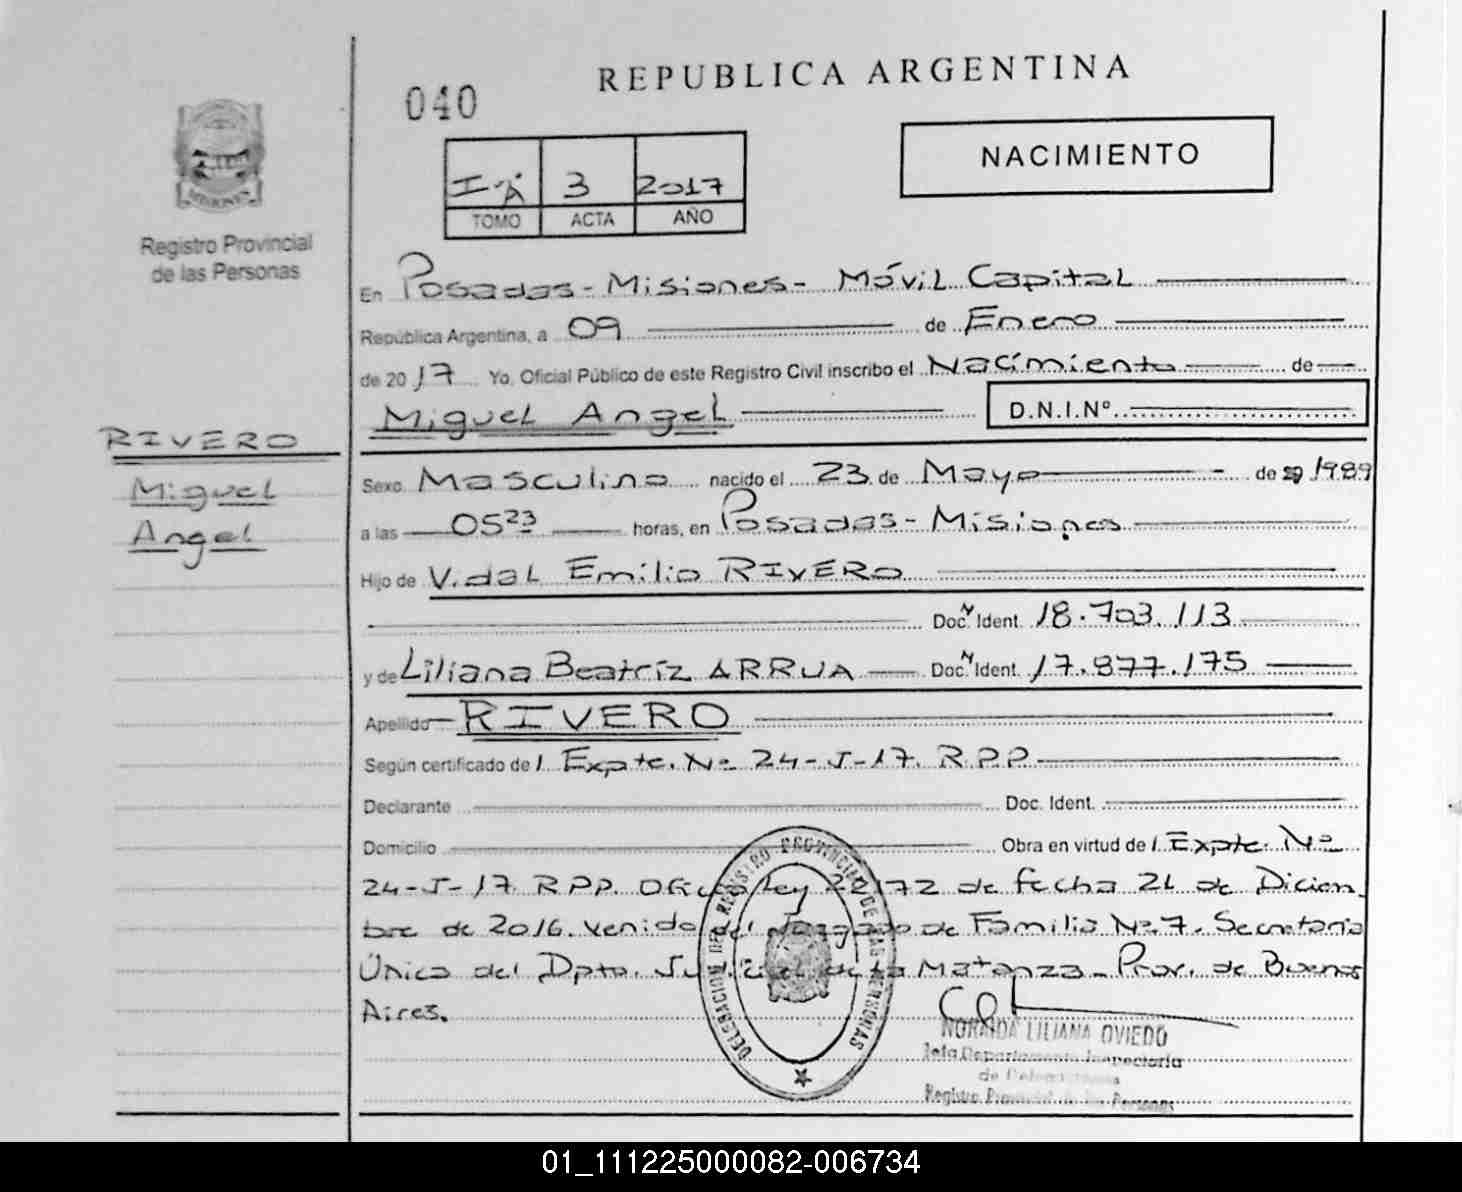 REPUBLICA ARGENTINA
040
NACIMIENTO
I-A 3 2017
TOMO ACTA AÑO
MISIONES
Registro Provincial
de las Personas
En Posadas - Misiones - Móvil Capital
República Argentina, a 09 de Enero
de 2017 Yo, Oficial Público de este Registro Civil inscribo el Nacimiento de
Miguel Angel D.N.I.Nº
RIVERO
Miguel
Angel
Sexo Masculino nacido el 23 de Mayo de 1989
a las 05 23 horas, en Posadas - Misiones
Hijo de Vidal Emilio RIVERO
Doc. Ident. 18.703.113
y de Liliana Beatriz ARRUA Doc. Ident. 17.877.175
Apellido RIVERO
Según certificado de Expte. Nº 24-J-17. R.P.P.
Declarante Doc. Ident.
Domicilio Obra en virtud de Expte. Nº
24-J-17. R.P.P. Oficio Ley 22172 de fecha 21 de Diciem
bre de 2016. venido del Juzgado de Familia Nº 7. Secretaria
Única del Dpto. Judicial de La Matanza - Prov. de Buenos
Aires.
DELEGACION DEL REGISTRO PROVINCIAL DE LAS PERSONAS
NORAIDA LILIANA OVIEDO
Jefa Departamento Inspectoria
de
Registro Provincial de las Personas
01_111225000082-006734